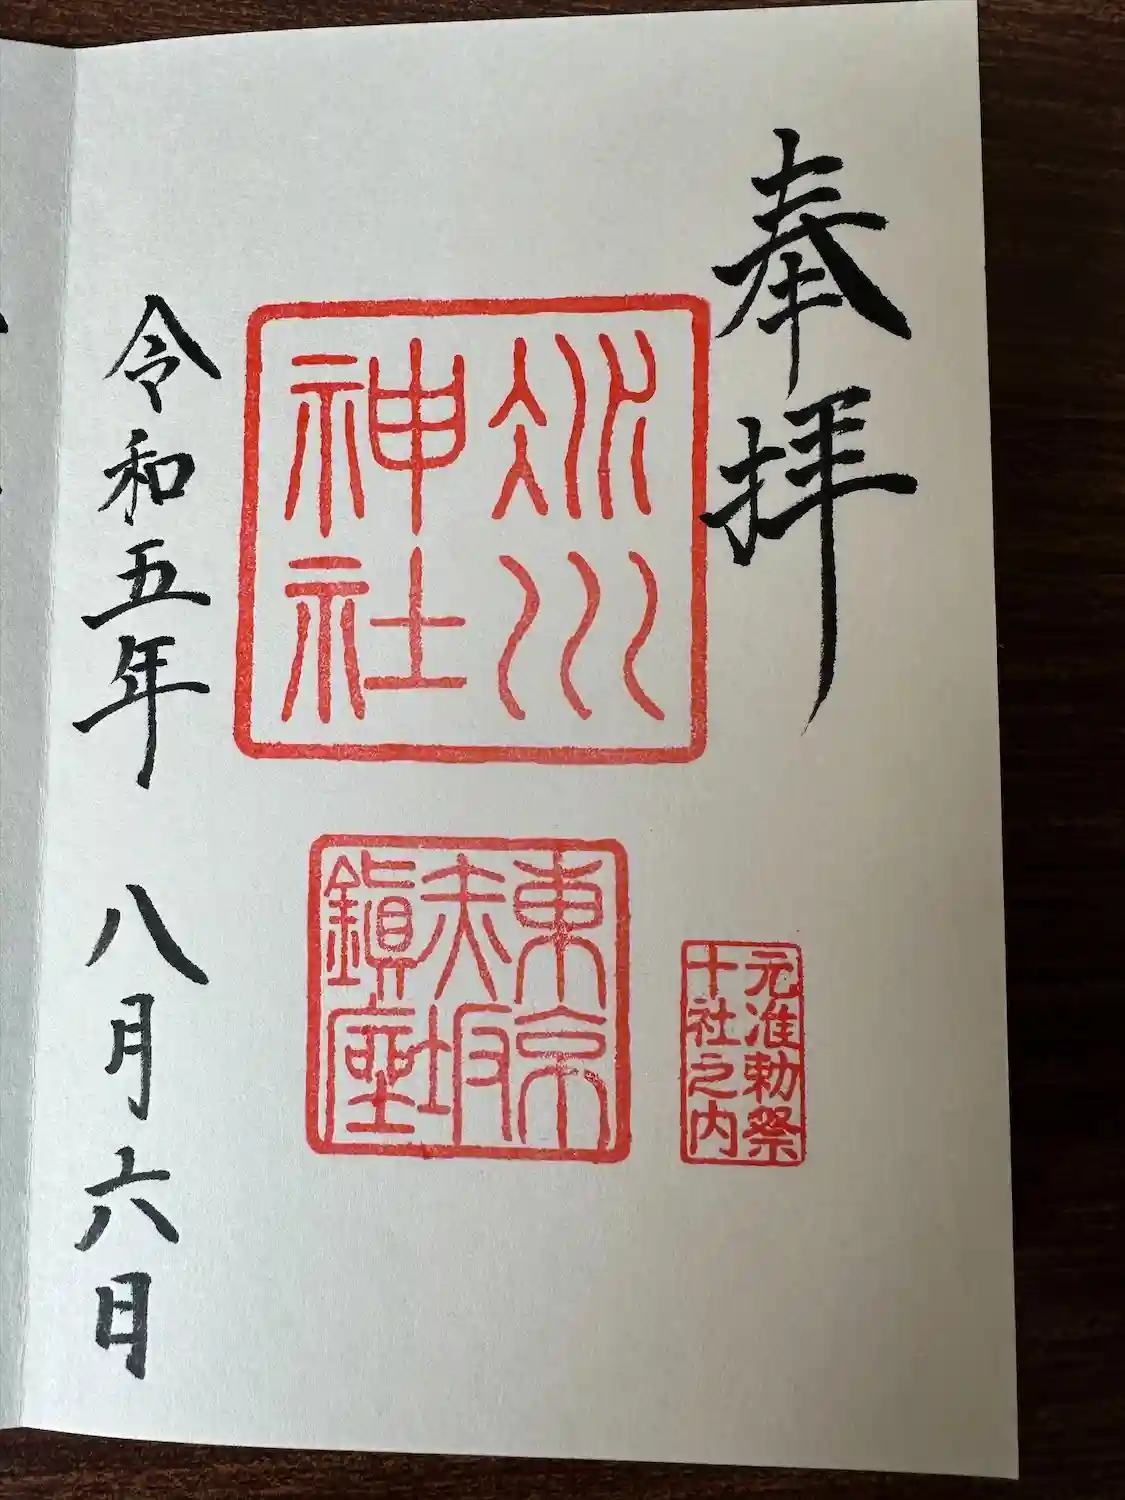 奉拝
冰川
神社
東京
赤坂
鎭座
元准勅祭
十社之内
令和五年 八月六日